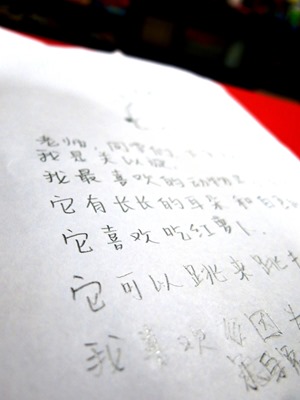 老师，同学
我是关以
我最喜欢的动物
它有长长的耳朵和
它喜欢吃红萝卜
它可以跳来跳去
我喜欢 因为